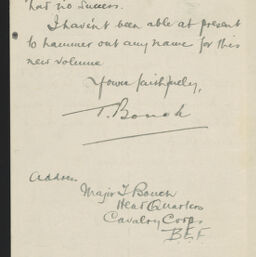 had no success.
I haven't been able at present
to hammer out any name for this
new volume
Yours faithfully,
T. Bouch
Address
Major T Bouch
Head Quarters
Cavalry Corps
B.E.F